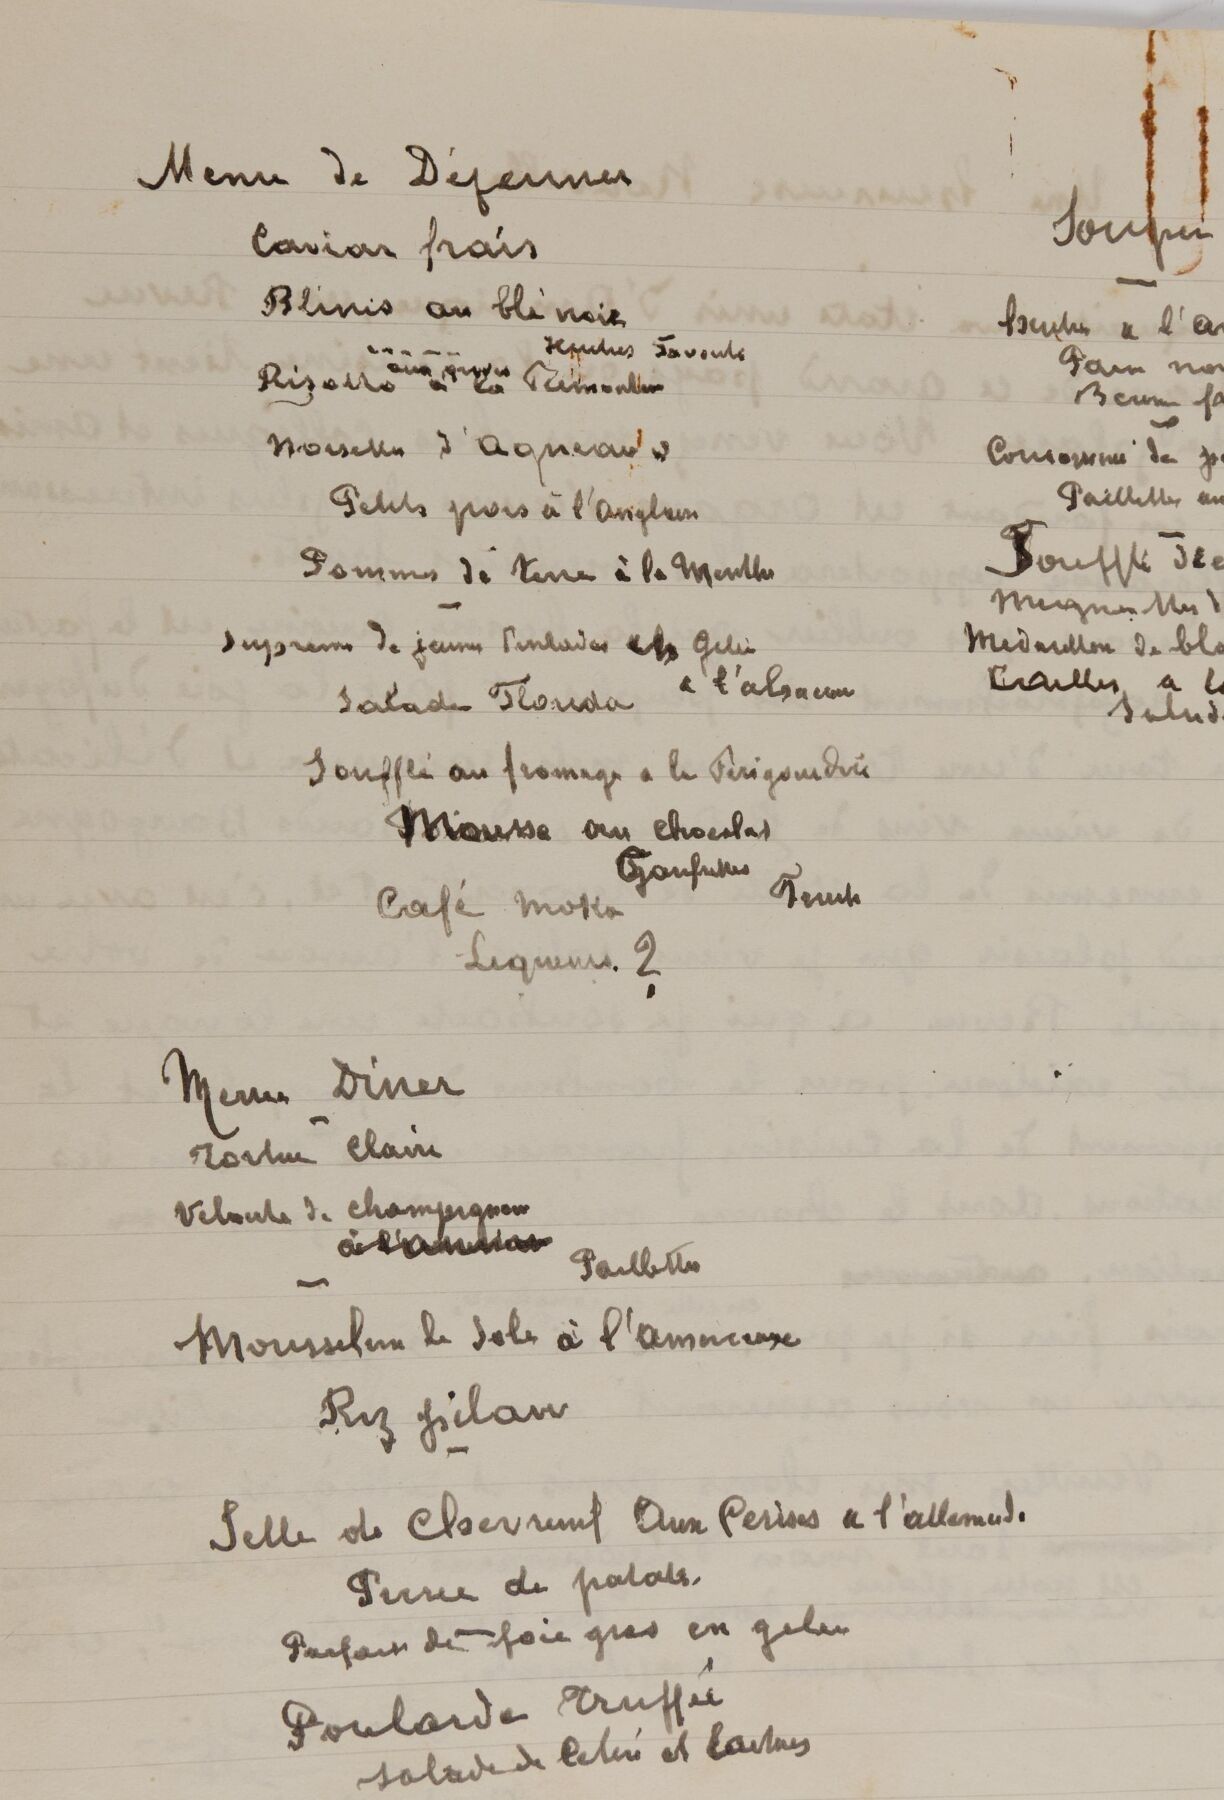 Menu de Déjeuner
Caviar frais
Blinis au blé noir
Risotto à la
Noisettes d'Agneau
Petits pois à l'anglaise
Pommes de terre à la Menthe
Supreme de jeunes Pintades gelée
à l'alsacienne
Salade Florida
Soufflé au fromage a la Périgourdine
Mousse au chocolat
Gaufrettes
Café Moka
Liqueurs. ?
Menu Diner
Tortue Claire
Velouté de champignons
Paillettes
Mousseline de Sole à l'armoricaine
Riz pilaw
Selle de Chevreuil Aux Cerises a l'allemande
Purée de patate.
Parfait de foie gras en gelée
Poularde truffée
salade de Celeri et
Souper
à l'a
Pain noi
Consommé de
Paillettes au
Soufflé
Mignonettes d
Medaillon de bla
Cailles a la
Salade